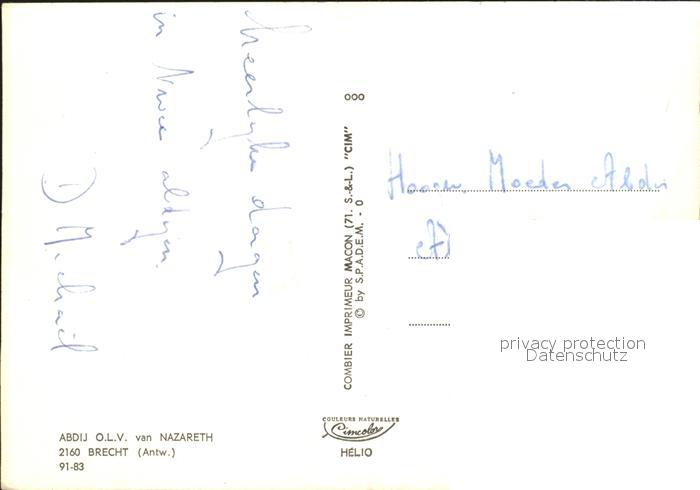 Heerlijke dagen
in
Michaël
ABDIJ O.L.V. van NAZARETH
2160 BRECHT (Antw.)
91-83
000
COMBIER IMPRIMEUR MACON (71. S.-&-L.) "CIM"
© by S.P.A.D.E.M. - 0
COULEURS NATURELLES
Cimcolor
HÉLIO
Moeder Abdis
privacy protection
Datenschutz